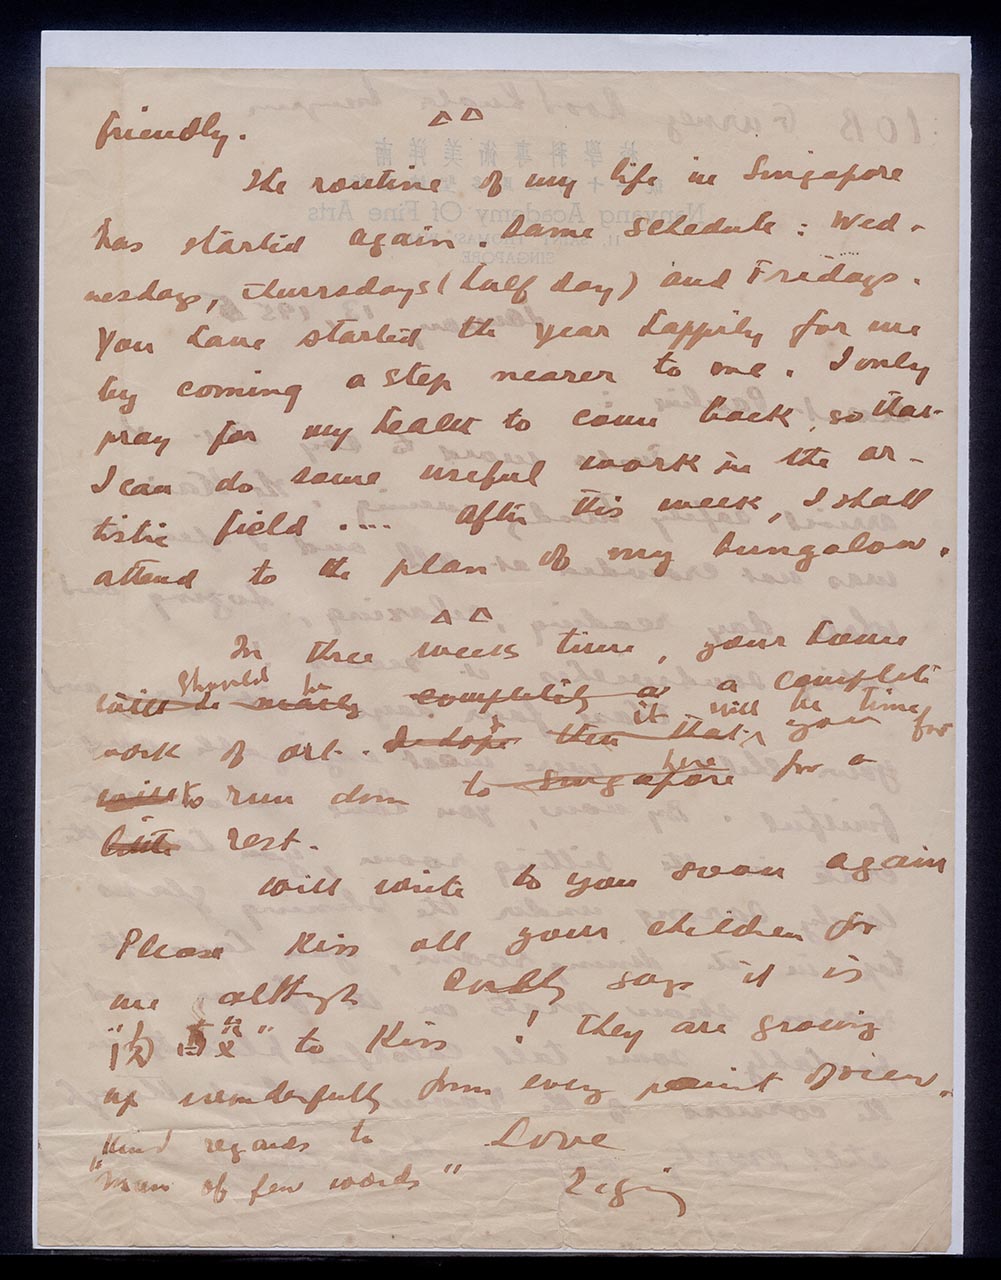 friendly.
The routine of my life in Singapore
has started again. Same schedule: Wed-
nesdays, Thursdays (half day) and Fridays.
You have started the year happily for me
by coming a step nearer to me. I only
pray for my health to come back, so that
I can do some useful work in the ar-
tistic field .... After this week, I shall
attend to the plan of my bungalow.
In three weeks time, your home
should be
will be nearly completely a a complete
it will be time for
work of art. I hope then that you
here
will to run down to Singapore for a
little rest.
Will write to you soon again
Please kiss all your children for
me although says it is
to kiss! They are growing
up wonderfully from every point of view.
Kind regards to Love
"Man of few words"